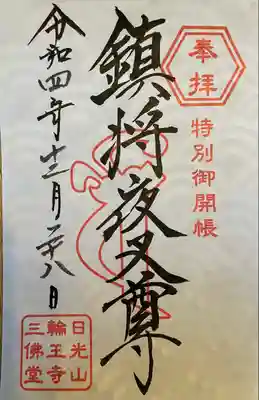 奉拝
特別御開帳
鎮将夜叉尊
令和四年十二月二十八日
日光山
輪王寺
三佛堂